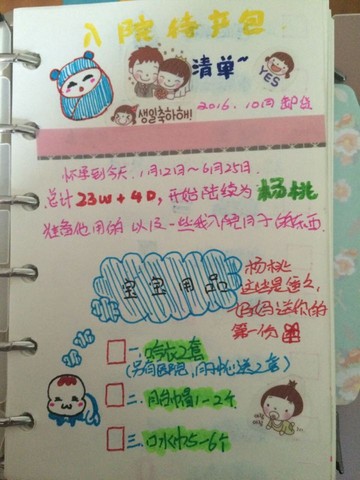 入院待产包
清单~
YES
생일축하해!
2016.10月 卸货
怀孕到今天，1月12日~6月25日.
总计23w+4D，开始陆续为杨桃
准备他用的 以及一些我入院月子的东西.
宝宝用品
杨桃
这些是爸么
妈送你的
第一份
一、哈衣2套
2套)
1-2个
三、口水巾5-6个